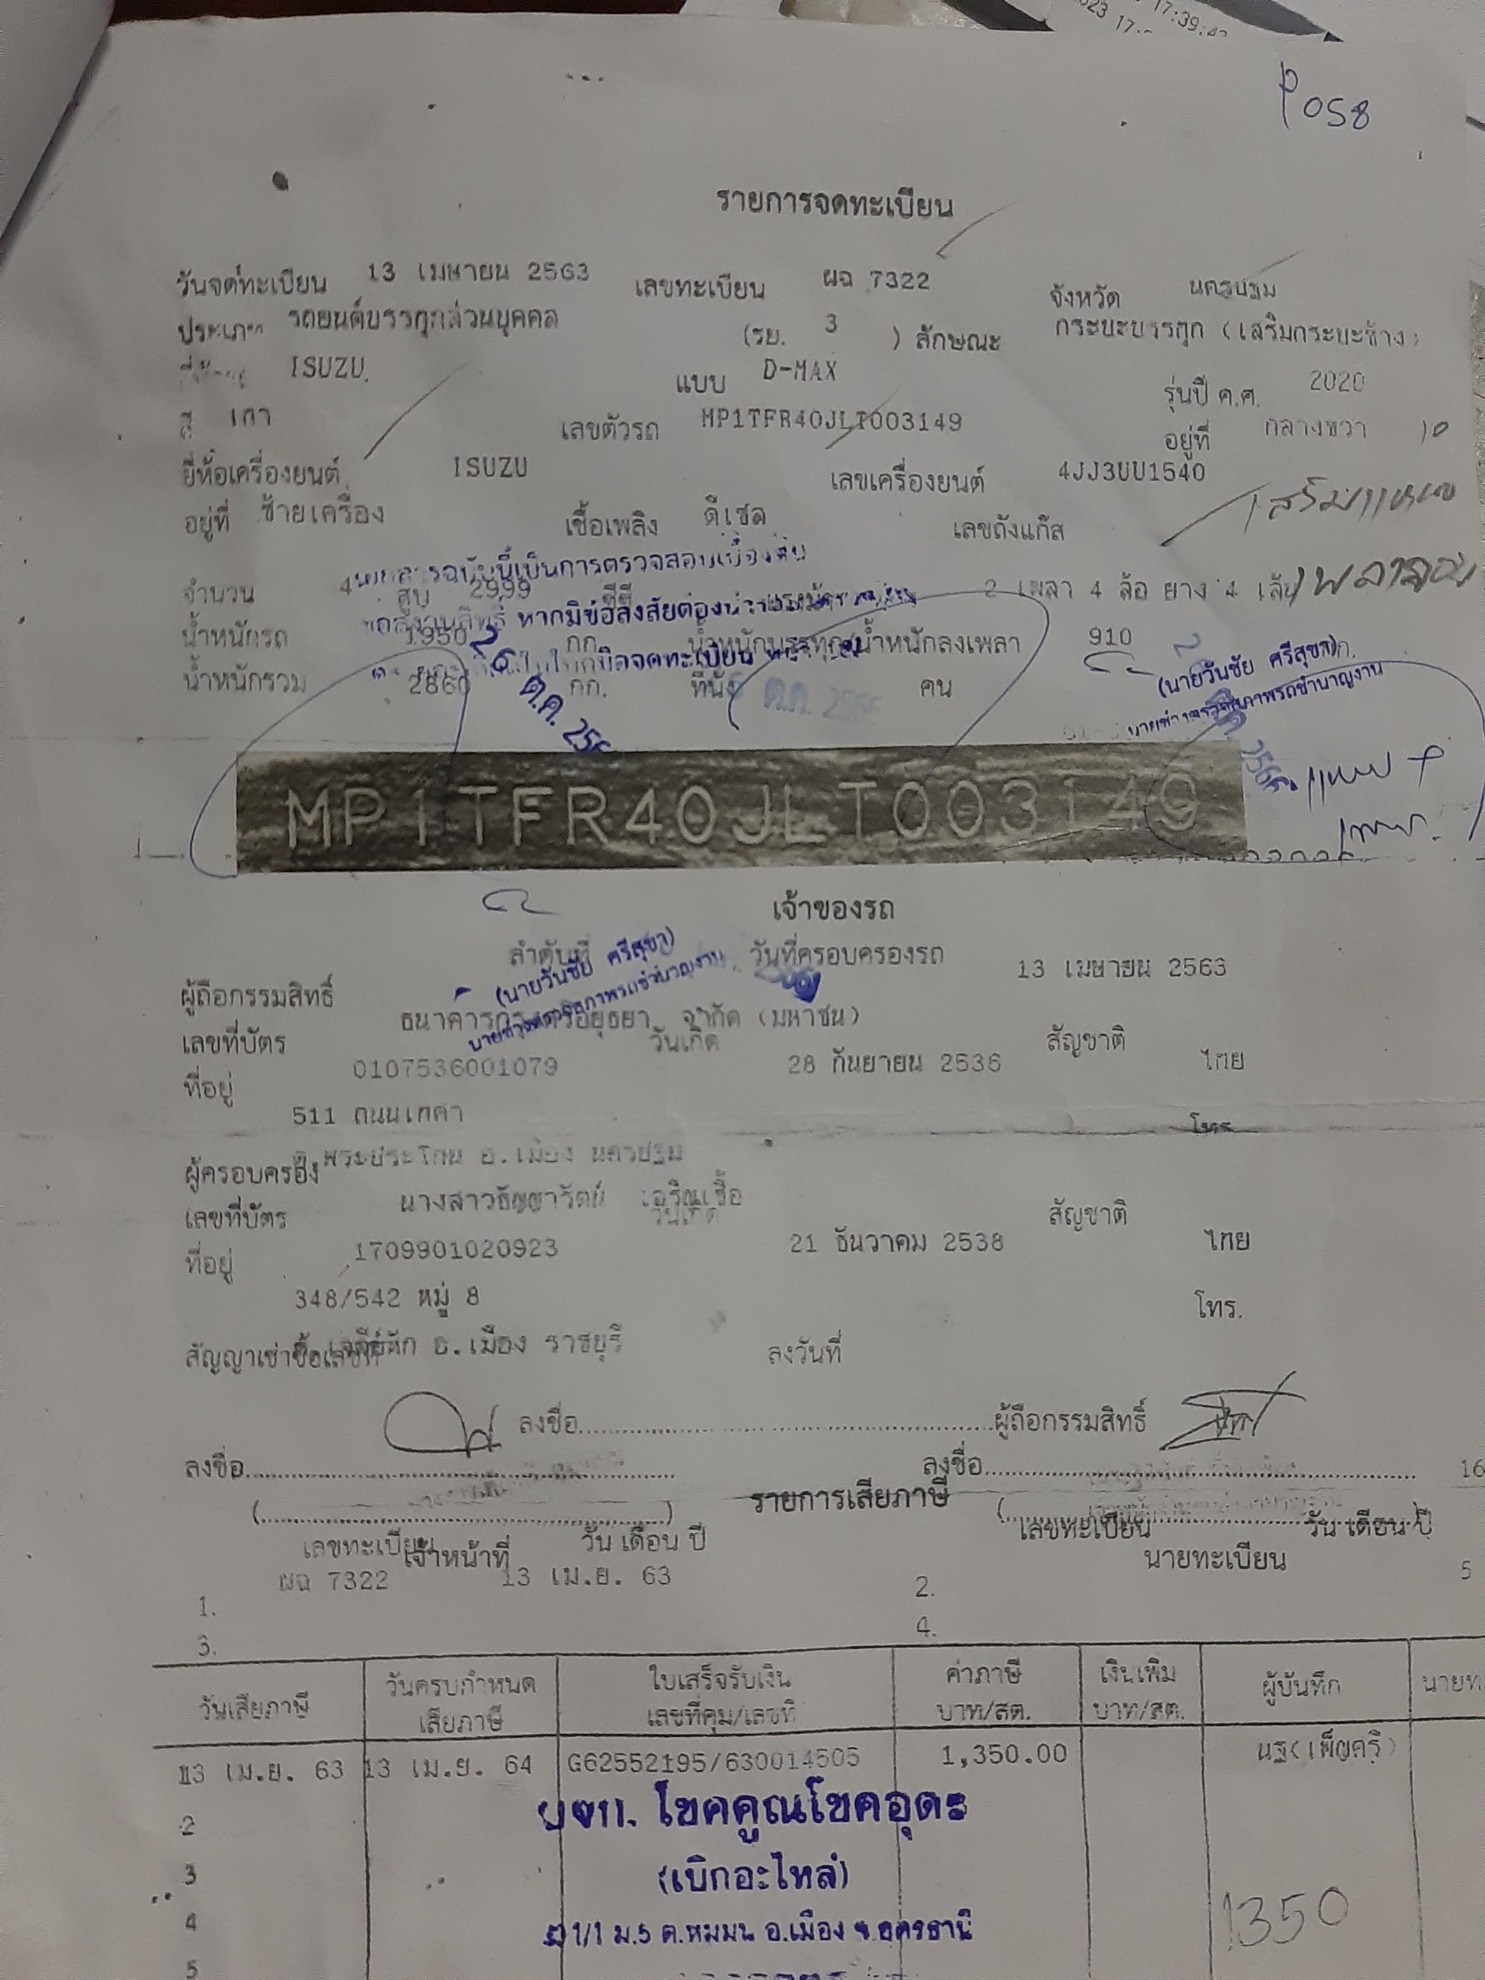 17:39:43
P058
รายการจดทะเบียน
วันจดทะเบียน 13 เมษายน 2563 เลขทะเบียน ผฉ 7322 จังหวัด นครปฐม
ประเภท รถยนต์บรรทุกส่วนบุคคล (รย. 3 ) ลักษณะ กระบะบรรทุก (เสริมกระบะข้าง)
ISUZU แบบ D-MAX รุ่นปี ค.ศ. 2020
สี เทา เลขตัวรถ MP1TFR40JLT003149 อยู่ที่ กลางขวา
ยี่ห้อเครื่องยนต์ ISUZU เลขเครื่องยนต์ 4JJ3UU1540
อยู่ที่ ซ้ายเครื่อง เชื้อเพลิง ดีเซล เลขถังแก๊ส
เสริมแหนบ
เป็นการตรวจสอบเบื้องต้น
จำนวน 4 สูบ 2999 ซีซี 2 เพลา 4 ล้อ ยาง 4 เส้น เพลาลอย
หากมีข้อสงสัย
น้ำหนักรถ 1950 กก. น้ำหนักบรรทุก/น้ำหนักลงเพลา 910
น้ำหนักรวม 2860 กก. ที่นั่ง คน
26 ต.ค. 256
(นายวันชัย ศรีสุขา)
นายช่างตรวจสภาพรถชำนาญงาน
MP1TFR40JLT003149
เจ้าของรถ
ลำดับที่ วันที่ครอบครองรถ 13 เมษายน 2563
(นายวันชัย ศรีสุขา)
นายช่างตรวจสภาพรถชำนาญงาน
ผู้ถือกรรมสิทธิ์ ธนาคารกรุงศรีอยุธยา จำกัด (มหาชน)
เลขที่บัตร 0107536001079 วันเกิด 28 กันยายน 2536 สัญชาติ ไทย
ที่อยู่ 511 ถนนเทศา โทร
พระประโทน อ.เมือง นครปฐม
ผู้ครอบครอง นางสาวธัญญารัตน์ เจริญเชื้อ
เลขที่บัตร 1709901020923 วันเกิด 21 ธันวาคม 2538 สัญชาติ ไทย
ที่อยู่ 348/542 หมู่ 8 โทร.
ต.เจดีย์หัก อ.เมือง ราชบุรี
สัญญาเช่าซื้อเลขที่ ลงวันที่
ลงชื่อ ผู้ถือกรรมสิทธิ์
ลงชื่อ ลงชื่อ 16
รายการเสียภาษี
เลขทะเบียน วัน เดือน ปี เลขทะเบียน วัน เดือน ปี
เจ้าหน้าที่ นายทะเบียน
1. ผฉ 7322 13 เม.ย. 63 2. 5
3. 4.
วันเสียภาษี วันครบกำหนดเสียภาษี ใบเสร็จรับเงิน เลขที่คุม/เลขที่ ค่าภาษี บาท/สต. เงินเพิ่ม บาท/สต. ผู้บันทึก นายท
13 เม.ย. 63 13 เม.ย. 64 G62552195/630014505 1,350.00 นฐ(เพ็ญศรี)
โชคคูณโชคอุดร
2
3 (เบิกอะไหล่)
4 1/1 ม.5 ต.หมูม่น อ.เมือง จ.อุดรธานี
1350
5